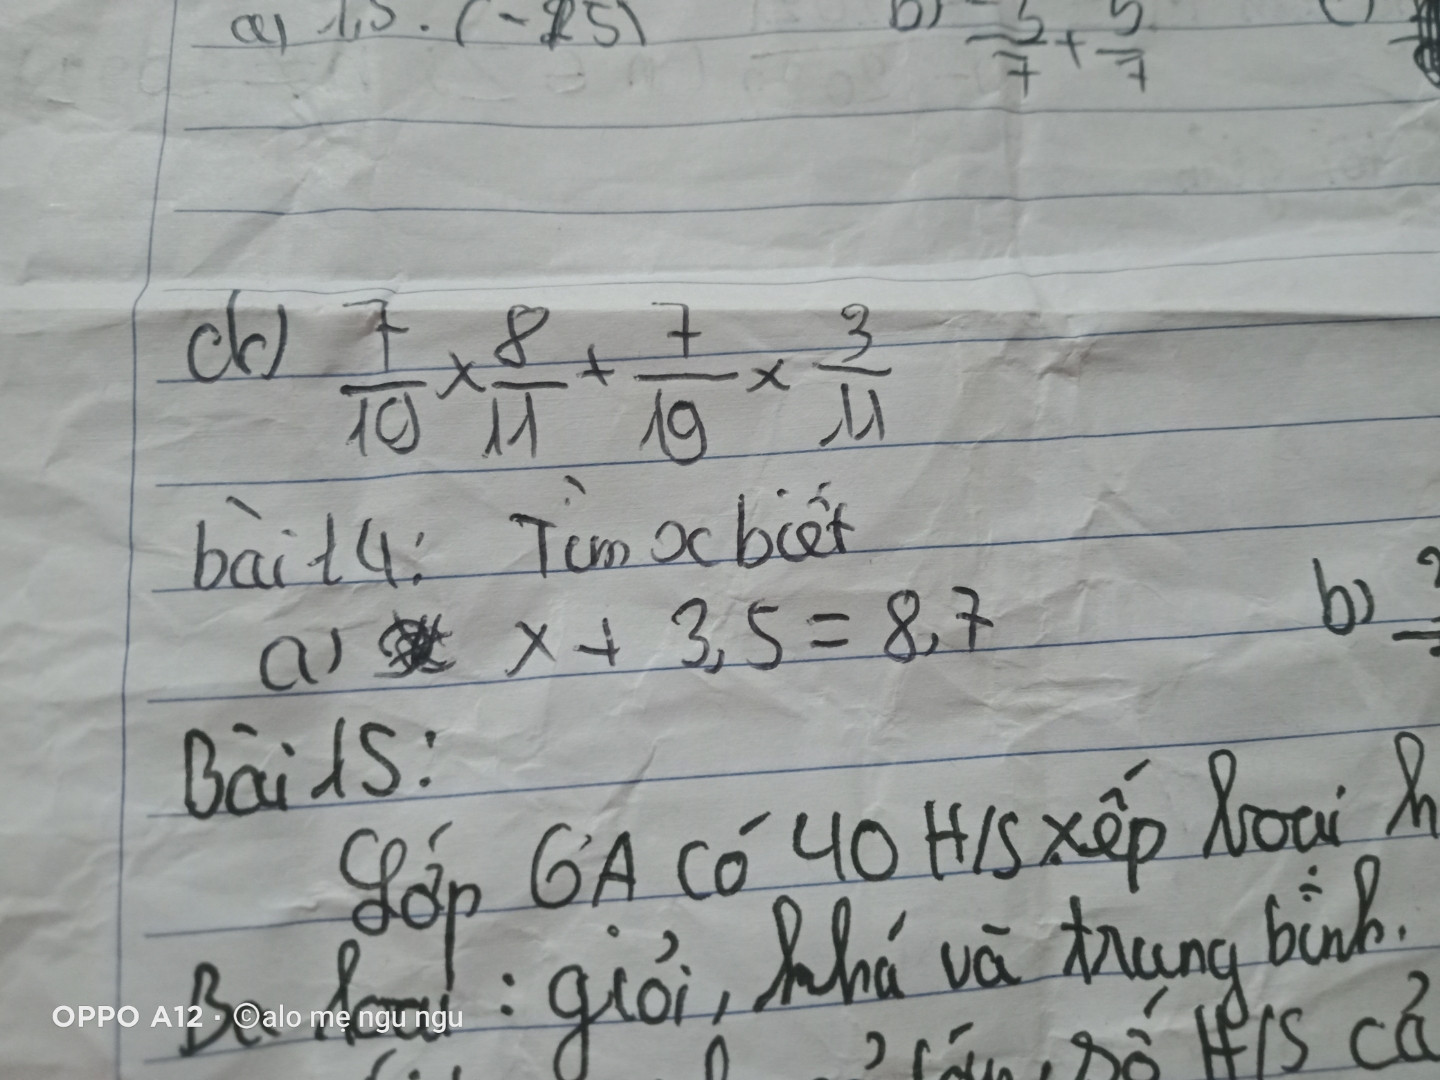 a) 1,5 . (-25) b) -5/7 + 5/7 c)
d) 7/19 × 8/11 + 7/19 × 3/11
bài 14: Tìm x biết
a) x + 3,5 = 8,7 b)
Bài 15:
Lớp 6A có 40 H/S xếp loại
Ba loại: giỏi, khá và trung bình.
số H/S cả
OPPO A12 · ©alo mẹ ngu ngu